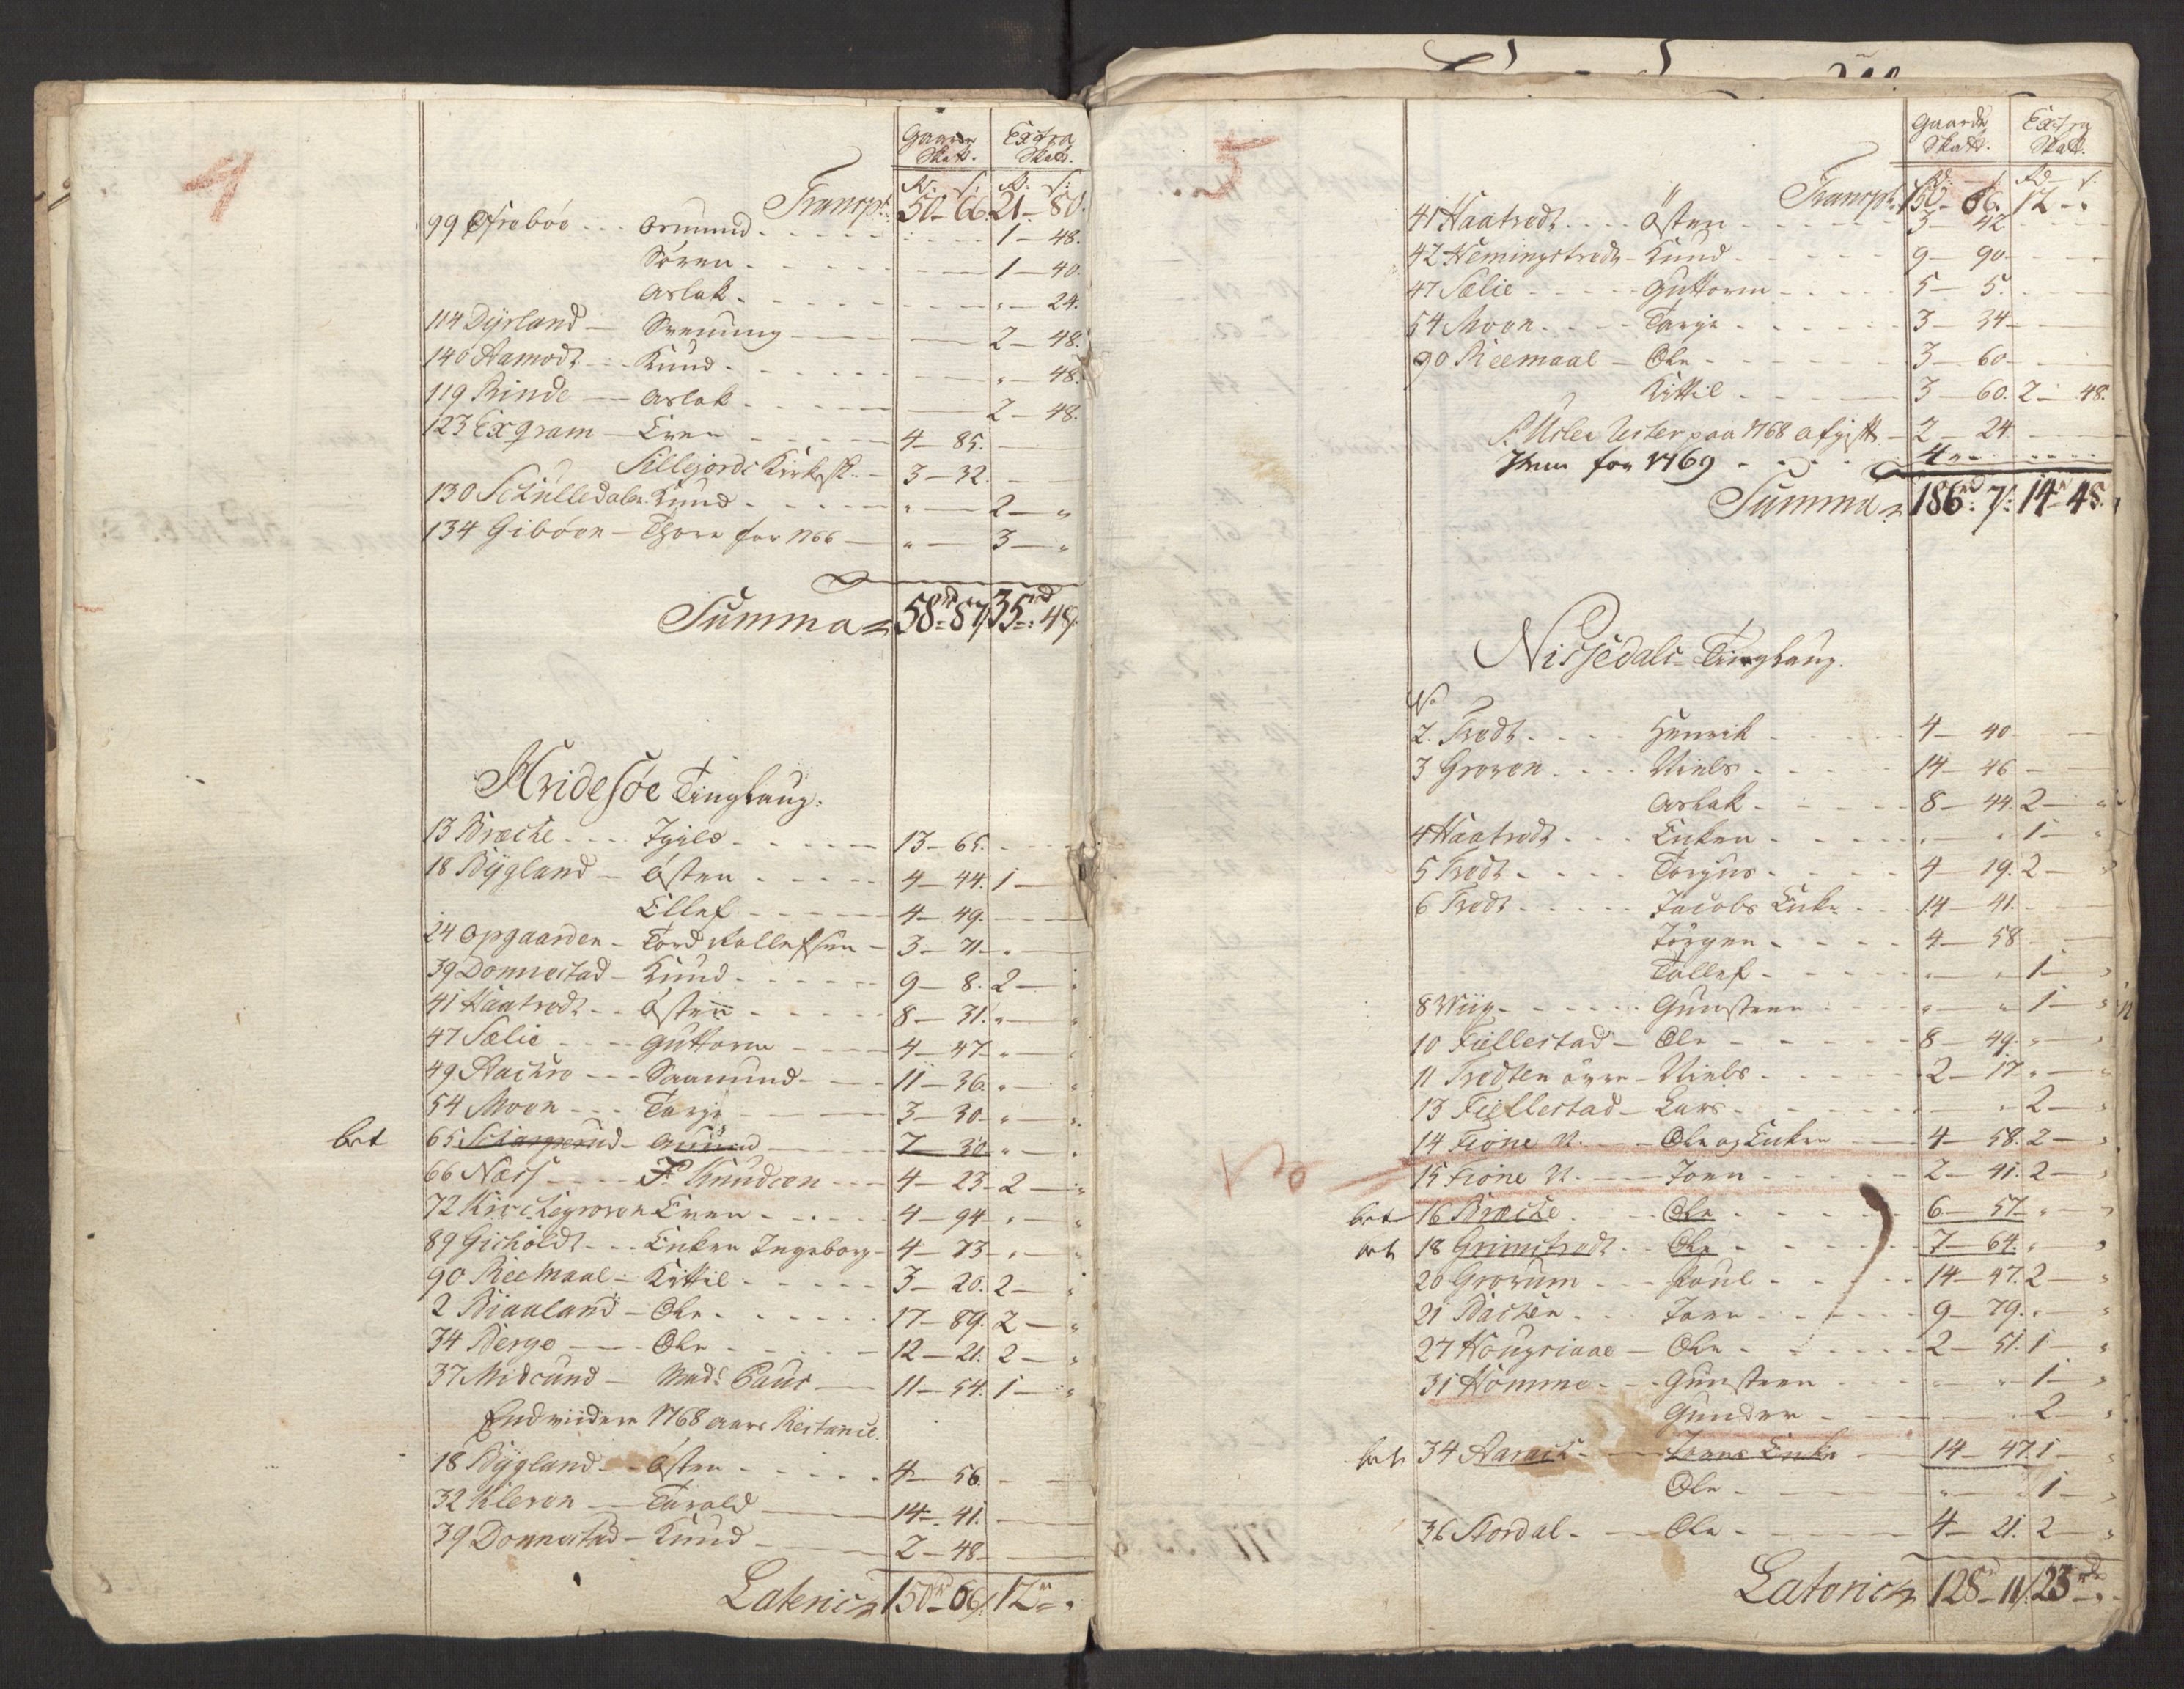 4
Gaarde Skatt. Extra Skatt.
Rd. s. Rd. s.
Transp: 50 - 66. 21 - 80.
99 Øfrebøe - Osmund - 1 - 48.
Søren - 1 - 40.
Aslak - " - 24.
114 Dÿrland - Svenung - 2 - 48.
140 Aamodt - Knud - " - 48.
119 Rinde - Aslak - 2 - 48.
123 Exgram - Even - 4 - 85.
Sillejords Kirke - 3 - 32.
130 Schulledalen Knud - " - 2 - "
134 Gibøen - Thore for 1766 - " - 3 - "
Summa 58rd 87s 35rd 48s
Hvidesøe Tinglaug:
13 Bræche - Igild - 13 - 65.
18 Bÿgland - Østen - 4 - 44. 1 -
Ellef - 4 - 49.
24 Opgaarden - Tord Rollefsen - 3 - 71 - "
39 Donnestad - Knud - 9 - 8. 2 - "
41 Haatvedt - Østen - 8 - 31. " - "
47 Sælie - Guttorm - 4 - 47 - " - "
49 Aachre - Saamund - 11 - 36. " - "
54 Moen - Tarje - 3 - 30 - " - "
bet 65 Scharperud - Amund - 7 - 30 - " - "
66 Næss - P. Knudsen - 4 - 23 - 2 - "
72 Kirckegroven Even - 4 - 94 - " - "
89 Gicholdt - Enken Ingeborg - 4 - 73 - " - "
90 Reemaal - Kittil - 3 - 20. 2 - "
2 Biaaland - Ole - 17 - 89. 2 - "
34 Berge - Ole - 12 - 21. 2 - "
37 Midsund - Mads Paus - 11 - 54. 1 - "
Endviidere 1768 Aars Restance.
18 Bÿgland - Østen - 4 - 56.
32 Kleven - Tarald - 14 - 41.
39 Donnestad - Knud - 2 - 48 -
Lateris 150rd 66s 12rd "
5
Gaarde Skatt. Extra Skatt.
Rd. s. Rd s.
Transp: 150 - 66. 12 - "
41 Haatvedt - Østen - 3 - 42
42 Hemingstvedt - Knud - 9 - 90 -
47 Sælie - Guttorm - 5 - 5.
54 Moen - Tarje - 3 - 34 -
90 Reemaal - Ole - 3 - 60 -
Kittil - 3 - 60. 2 - 48.
paa 1768 Afgift - 2 - 24.
for 1769 - 4 "
Summa 186rd 7s 14rd 48.
Nissedals Tinglaug.
No
2. Tvedt - Henrik - 4 - 40
3 Groven - Niels - 14 - 46 -
Aslak - 8 - 44. 2 - "
4 Haatvedt - Enken - " - " 1 - "
5 Tvedt - Torgus - 4 - 19. 2 - "
6 Tvedt - Jacobs Enke - 14 - 41.
Jörgen - 4 - 58
Tollef - " - " 1 - "
8 Wiig - Gunsteen - " - " 1 - "
10 Fiellestad - Ole - 8 - 49. " - "
11 Tvedten övre - Niels - 2 - 17 " - "
13 Fiellestad - Lars - " 2 - "
14 Fione N. - Ole og Enken - 4 - 58. 2 - "
15 Fione N. - Joen - 2 - 41. 2 - "
bet 16 Bræche - Ole - 6 - 57 - " - "
bet 18 Grimstvedt - Ole - 7 - 64. " - "
20 Grovum - Poul - 14 - 47. 2 - "
21 Bachen - Joen - 9 - 79. " - "
27 Hougsiaae - Ole - 2 - 51. 1 - "
31 Homme - Gunsteen - " - " 1 - "
Gunder - " 2 - "
bet 34 Aarach - Joens Enke - 14 - 47. 1 -
Ole - " - " 1 - "
36 Nordal - Ole - 4 - 21. 2 - "
Lateris 128rd 11s 23rd "